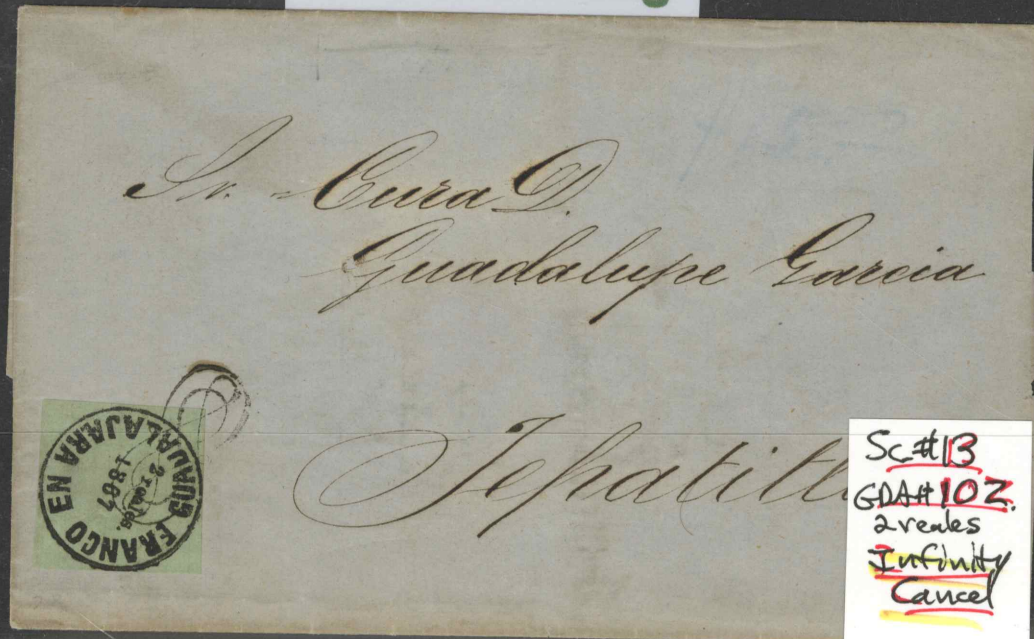 Sr. Cura D.
Guadalupe Garcia
Tepatitl
FRANCO EN GUADALAJARA
2 rs
1867
Sc#13
GDA# 102.
2 reales
Infinity
Cancel